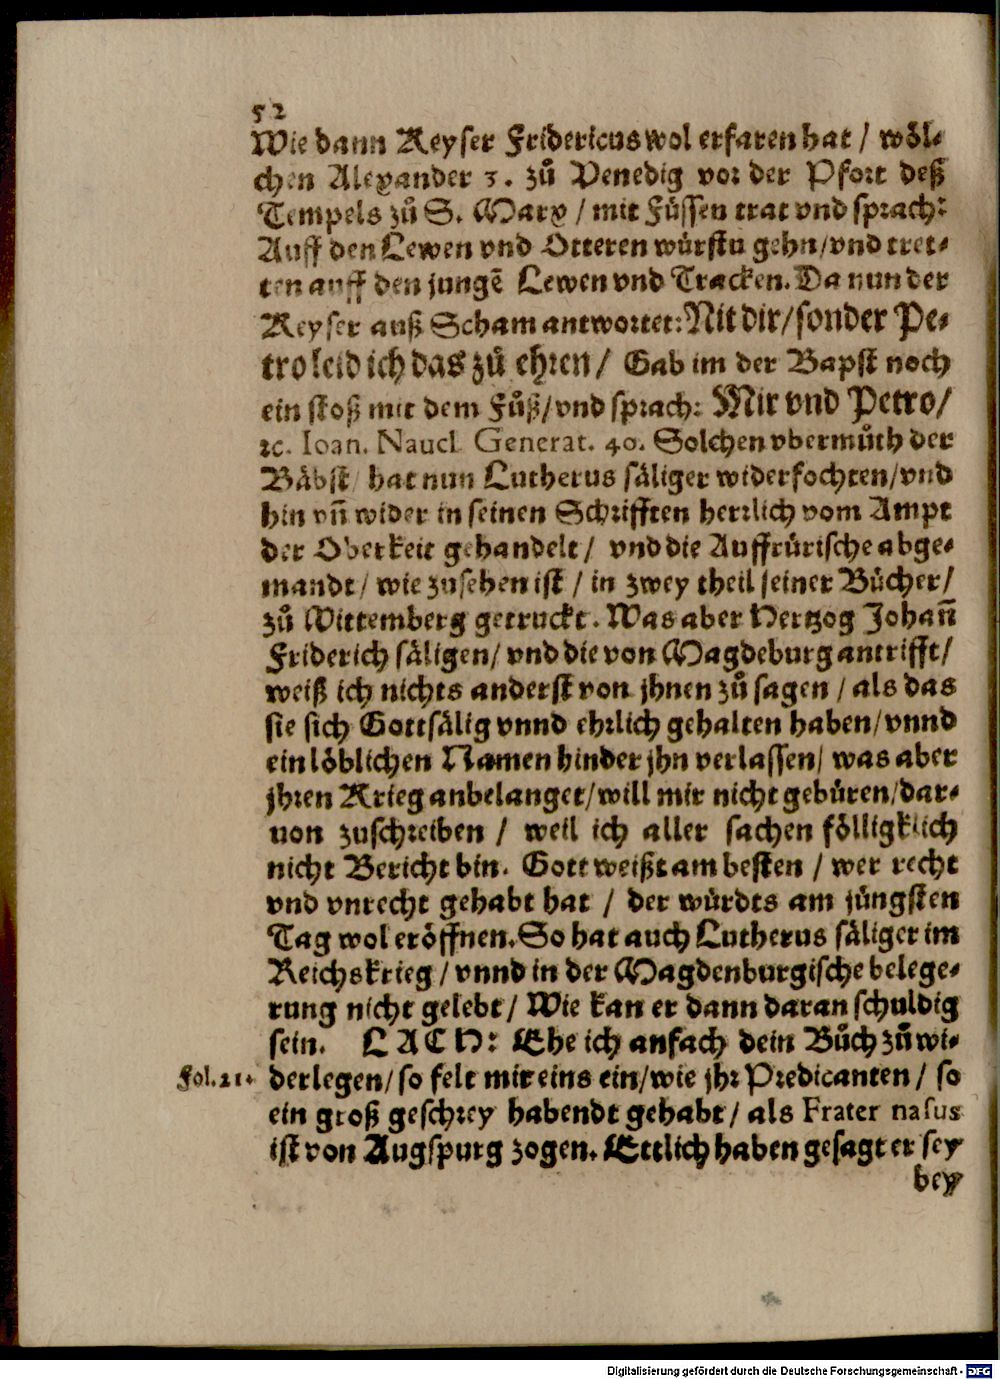 52
Wie dann Keyser Fridericus wol erfaren hat / wöl-
chen Alexander 3. zů Venedig vor der Pfort deß
Tempels zů S. Marx / mit Füssen trat vnd sprach:
Auff den Lewen vnd Otteren würstu gehn / vnd tret-
ten auff den jungē Lewen vnd Tracken. Da nun der
Keyser auß Scham antwortet: Nit dir / sonder Pe-
tro leid ich das zů ehren / Gab im der Bapst noch
ein stoß mit dem Fůß / vnd sprach: Mir vnd Petro /
ꝛc. Ioan. Naucl. Generat. 40. Solchen vbermůth der
Bäbst / hat nun Lutherus säliger widerfochten / vnd
hin vñ wider in seinen Schrifften herrlich vom Ampt
der Oberkeit gehandelt / vnd die Auffrürische abge-
mandt / wie zusehen ist / in zwey theil seiner Bücher /
zů Wittemberg getruckt. Was aber Hertzog Johañ
Friderich säligen / vnd die von Magdeburg antrifft /
weiß ich nichts anderst von jhnen zů sagen / als das
sie sich Gottsälig vnnd ehrlich gehalten haben / vnnd
ein löblichen Namen hinder jhn verlassen / was aber
jhren Krieg anbelanget / will mir nicht gebüren / dar-
uon zuschreiben / weil ich aller sachen fölligklich
nicht Bericht bin. Gott weißt am besten / wer recht
vnd vnrecht gehabt hat / der würdts am jüngsten
Tag wol eröffnen. So hat auch Lutherus säliger im
Reichskrieg / vnnd in der Magdenburgische belege-
rung nicht gelebt / Wie kan er dann daran schuldig
sein. LACH: Ehe ich anfach dein Bůch zů wi-
Fol. 21. derlegen / so felt mir eins ein / wie jhr Predicanten / so
ein groß geschrey habendt gehabt / als Frater nasus
ist von Augspurg zogen. Ettlich haben gesagt er sey
bey
Digitalisierung gefördert durch die Deutsche Forschungsgemeinschaft - DFG